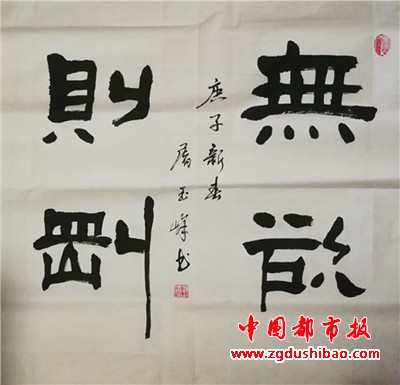 無欲
則剛
庶子新春
屠玉峰书
中国都市报
www.zgdushibao.com